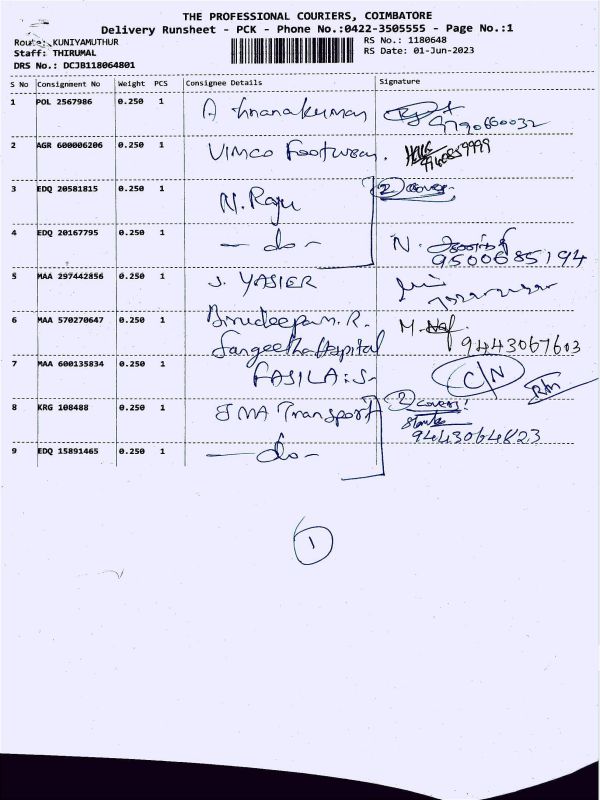 THE PROFESSIONAL COURIERS, COIMBATORE
Delivery Runsheet - PCK - Phone No.:0422-3505555 - Page No.:1
Route: KUNIYAMUTHUR
RS No.: 1180648
Staff: THIRUMAL
RS Date: 01-Jun-2023
DRS No.: DCJB118064801
S No Consignment No Weight PCS Consignee Details Signature
1 POL 2567986 0.250 1 A Gnanakumar
9790660032
2 AGR 600006206 0.250 1 Vimco Footwear.
3 EDQ 20581815 0.250 1 N. Raju 2 covers.
4 EDQ 20167795 0.250 1 - do - N.
9500685194
5 MAA 297442856 0.250 1 J. YASIER
6 MAA 570270647 0.250 1 R. M.
Sangeetha Hospital 9443067603
7 MAA 600135834 0.250 1 FASILA.S- C/N
8 KRG 108488 0.250 1 Transport 2 covers!
9443064823
9 EDQ 15891465 0.250 1 - do -
1